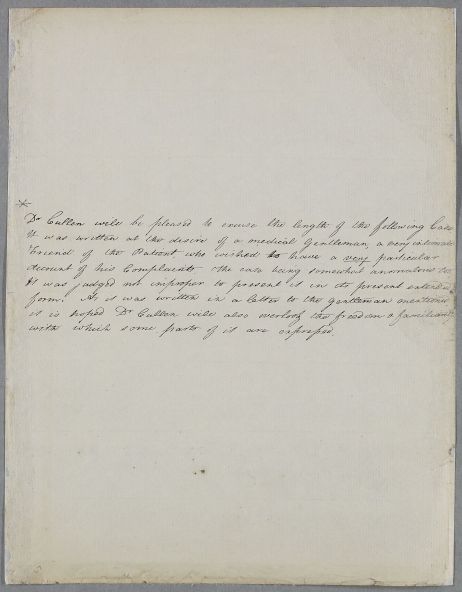 *
Dr Cullen will be pleased to excuse the length of the following Case
It was written at the desire of a medical Gentleman, a very intimate
Friend of the Patient who wished to have a very particular
Account of his Complaints the case being somewhat anomalous
It was judged not improper to present it in its present extended
form. As it was written in a letter to the gentleman mentioned
it is hoped Dr Cullen will also overlook the freedom & familiarity
with which some parts of it are expressed.